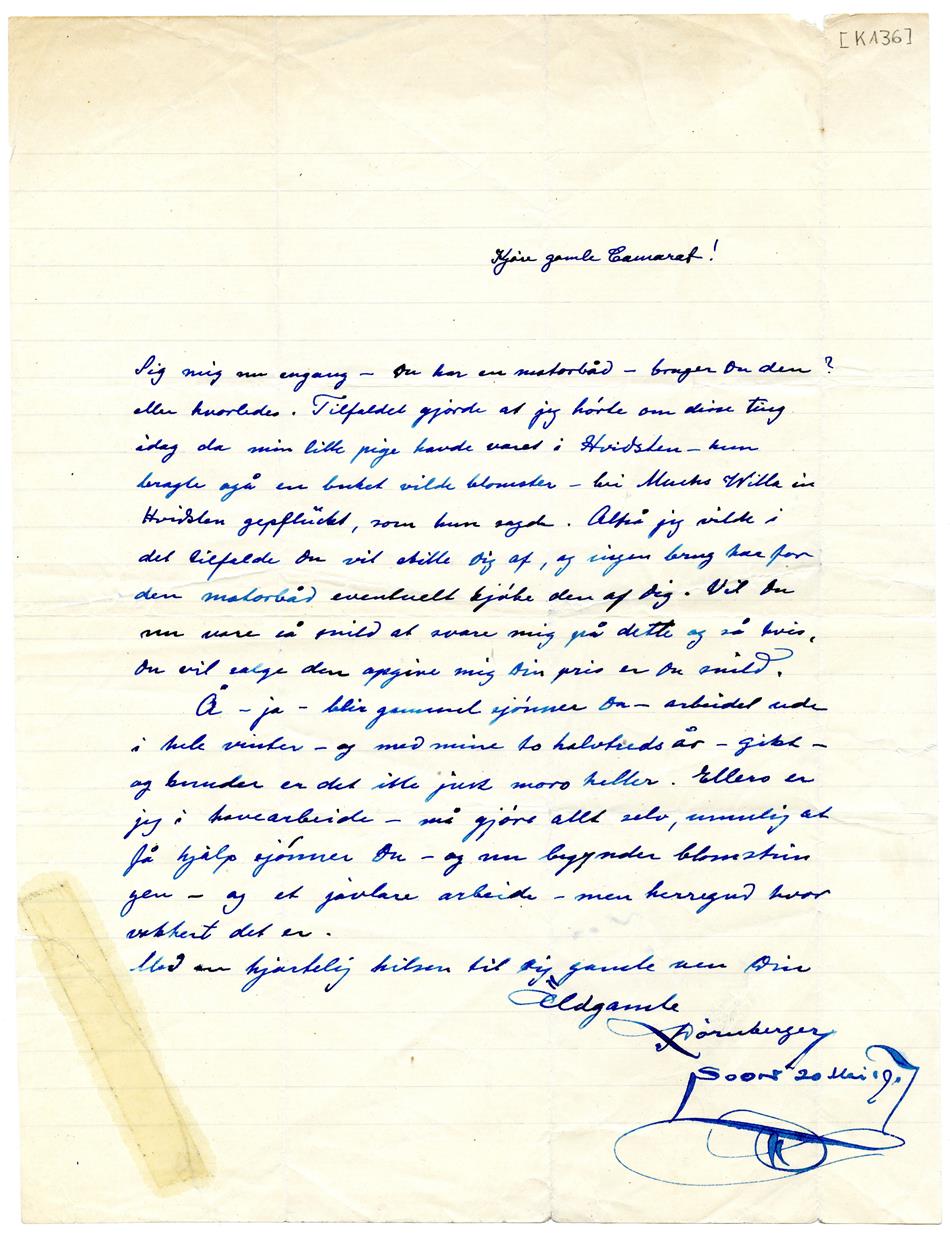 [K136]
Kjöre gamle Camarat!
Sig mig nu engang – Du har en motorbåd – bruger Du den?
eller hvorledes. Tilfaldet gjorde at jeg hörte om disse ting
idag da min lille pige havde varet i Hvidsten – hun
bragte ogå en buket vilde blomster – bei Munchs Willa in
Hvidsten gepflückt, som hun sagde. Altså jeg vilde i
det tilfalde Du vil skille Dig af, og ingen brug har for
den motorbåd eventuelt kjöbe den af Dig. Vil Du
nu vare så snild at svare mig på dette og så hvis,
Du vil salge den opgive mig Din pris er Du snild.
Å – ja – blir gammel sjönner Du – arbeidet ude
i hele vinter – og med mine to halvtreds år – gikt –
og bruder er det ikke just moro heller. Ellers er
jeg i havearbeide – må gjöre allt selv, umulig at
få hjalp sjönner Du – og nu begynder blomstrin
gen – og et javlare arbeide – men herregud hvor
vakkert det er.
Med en hjartelig hilsen til Dig gamle ven Din
Eldgamle
Dörnberger
Soon 20 Mai 19.